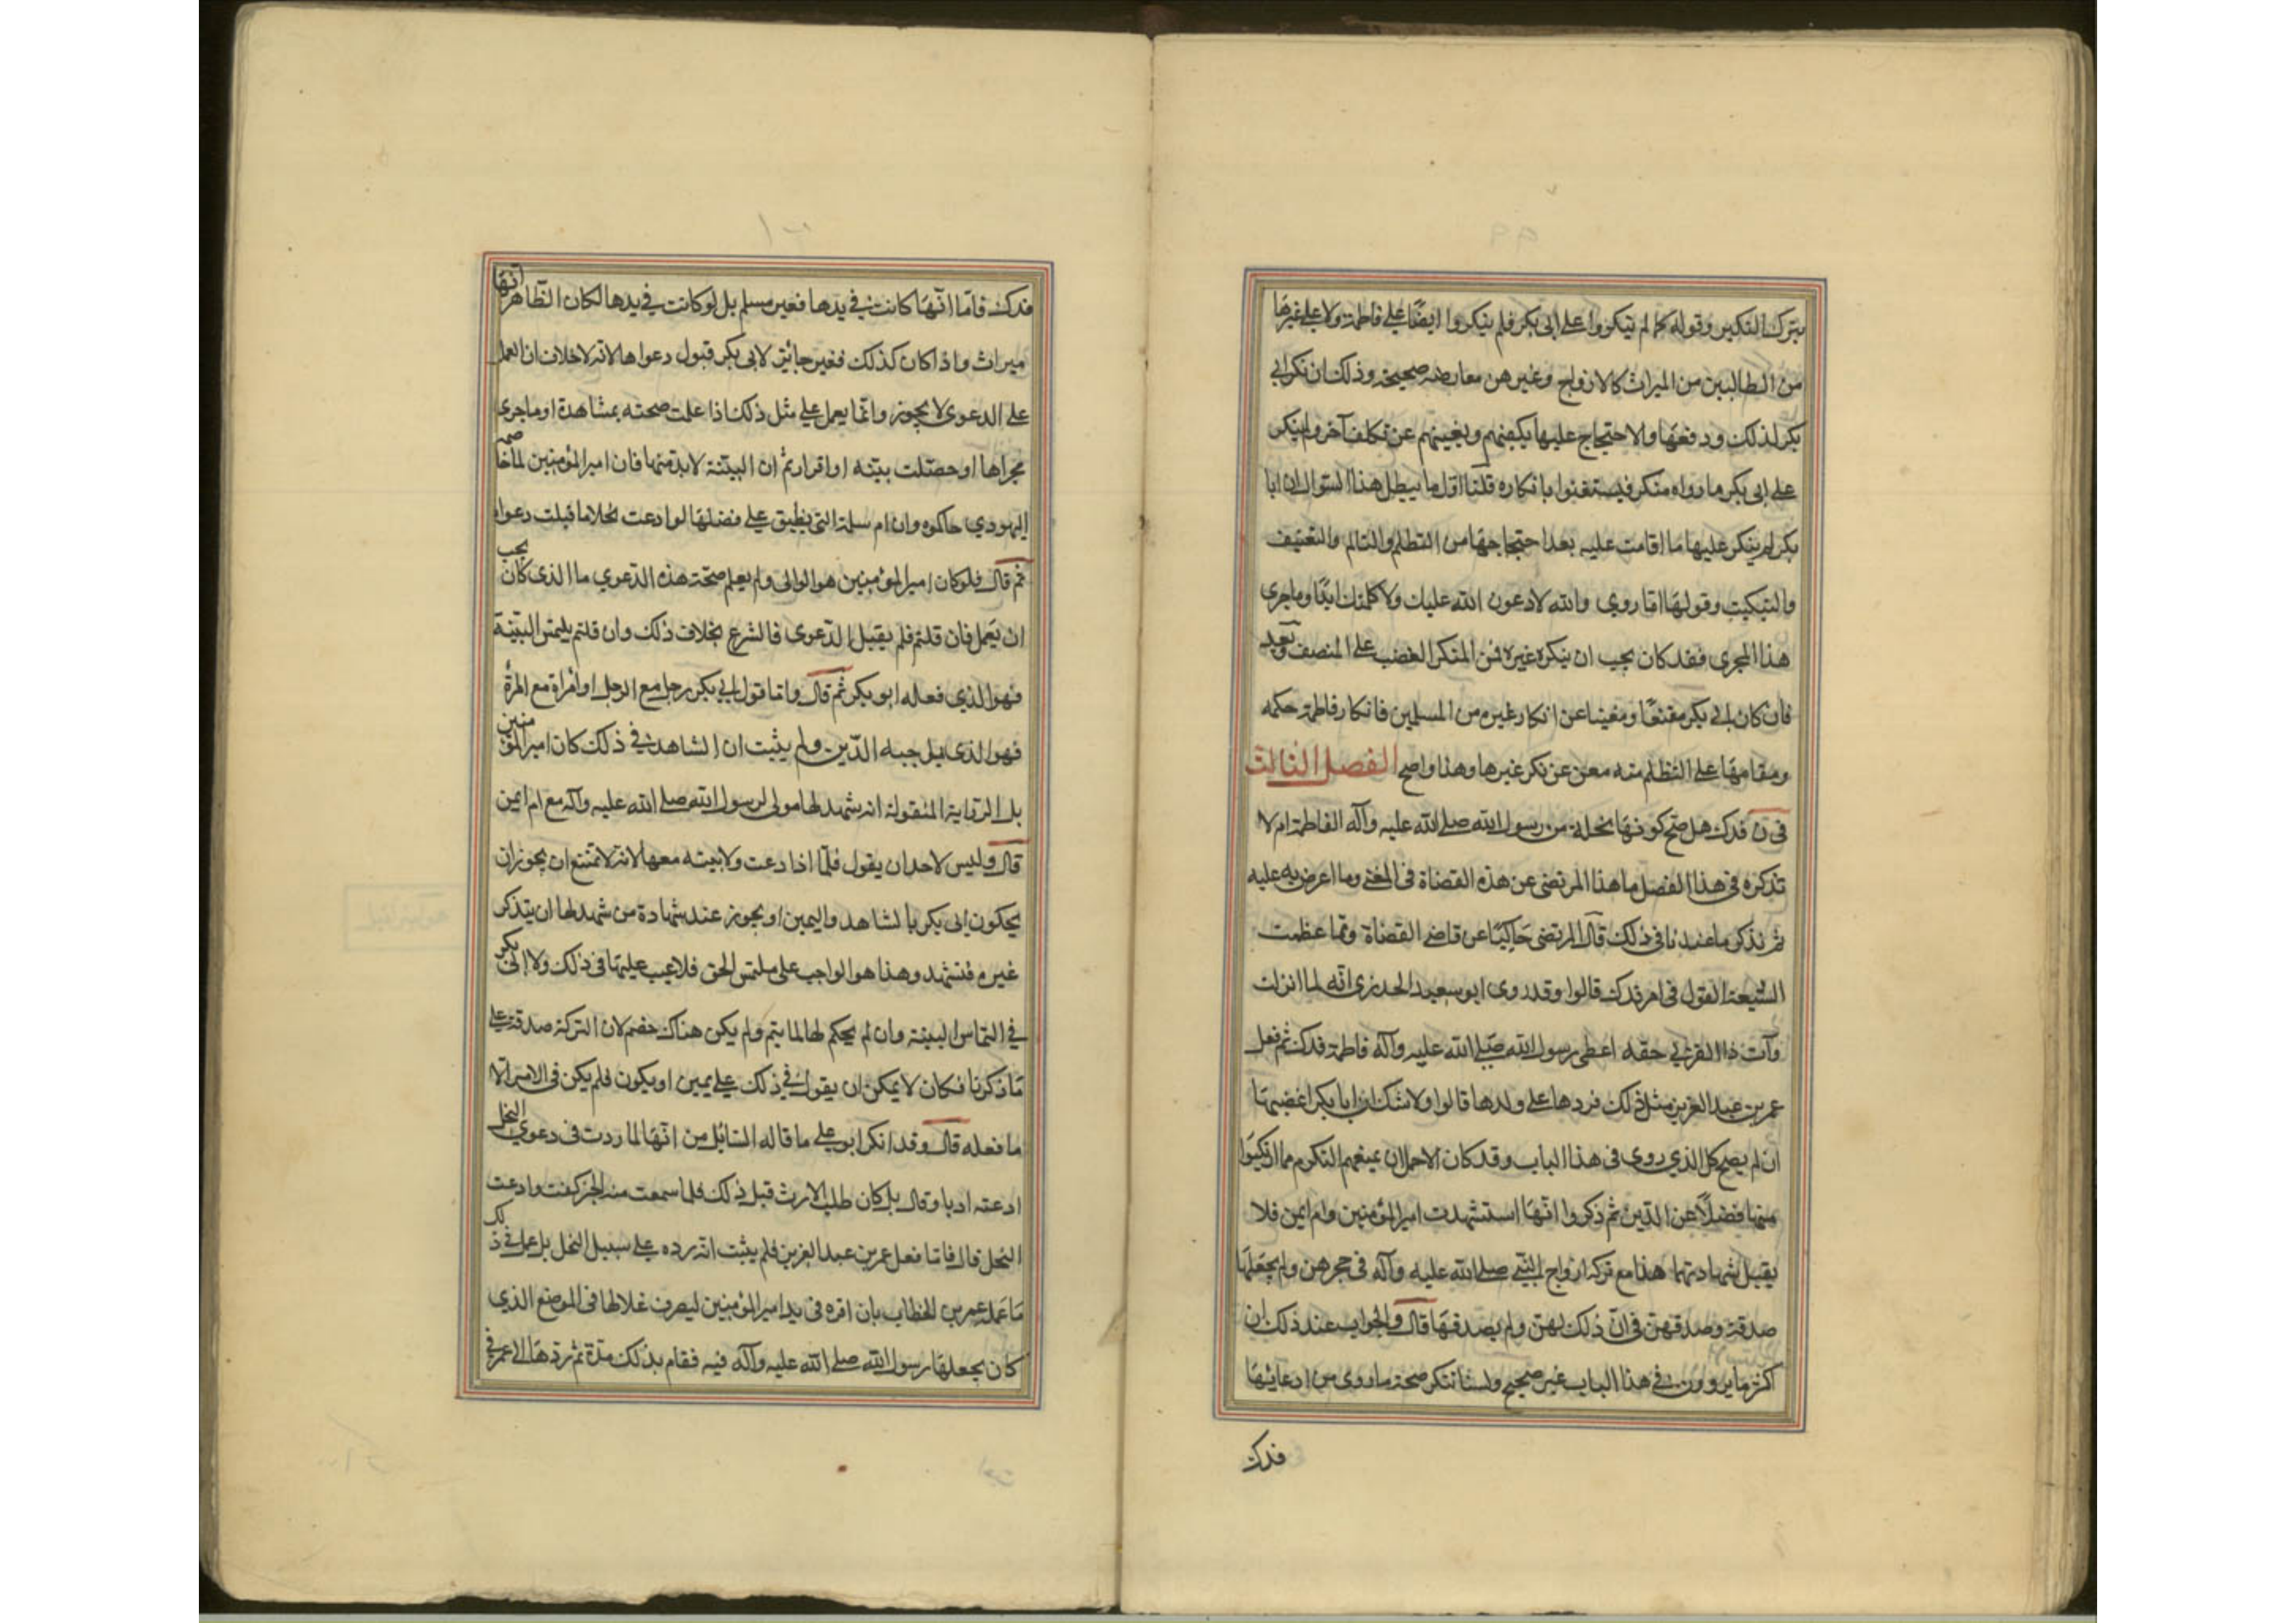 بترك النكير وقوله كما لم ينكروا على ابى بكر فلم ينكروا ايضًا على فاطمة ولا على غيرها
من الطالبين من الميراث كالازواج وغيرهن معارضة صحيحة وذلك ان نكر ابي
بكر لذلك ودفعها والاحتجاج عليها يكفيهم ويغنيهم عن تكلف آخر ولم ينكر
على ابى بكر ما رواه منكر فيستغنوا بانكاره قلنا اوّل ما يبطل هذا السّوال ان ابا
بكر لم ينكر عليها ما اقامت عليه بعد احتجاجها من التظلم والتالم والتعنيف
والتبكيت وقولها اما روي والله لادعون الله عليك ولا كلمتك ابدًا وما جرى
هذا المجرى فقد كان يجب ان ينكره غيره فمن المنكر الغضب على المنصف وبعد
فان كان ابي بكر مقنعًا ومغنيا عن انكار غيره من المسلمين فانكار فاطمة حكمه
ومقامها على التظلم منه مغن عن نكر غيرها وهذا واضح الفصل الثالث
فى ن فدك هل صح كونها نحلة من رسول الله صلى الله عليه وآله الفاطمة ام لا
تذكره فى هذا الفصل ما هذا المرتضى عن هذه القضاة فى المغنى وما اعرض به عليه
ثم نذكر ما عندنا فى ذلك قال المرتضى حاكيًا عن قاضى القضاة ومما عظمت
الشيعة القول فى امر فدك قالوا وقد روى ابو سعيد الخدرى انّه لما انزلت
وآت ذا القربى حقه اعطى رسول الله صلى الله عليه وآله فاطمة فدك ثم فعل
عمر بن عبد العزيز مثل ذلك فردها على ولدها قالوا ولا شك ان ابا بكر اغضبها
ان لم يصح كل الذي روى فى هذا الباب وقد كان الاجمل ان يمنعهم التكرم مما ارتكبوا
منها فضلًا عن الدّين ثم ذكروا انّها استشهدت امير المؤمنين وام ايمن فلا
يقبل شهادتهما هذا مع تركه ازواج النّبي صلى الله عليه وآله فى حجرهن ولم يجعلها
صدقة وصدقهن فى انّ ذلك لهنّ ولم يصدقها قال والجواب عند ذلك ان
اكثر ما يروون في هذا الباب غير صحيح ولسنا ننكر صحة ما روى من ادعائها
فدك
فدك فامّا انّها كانت في يدها فغير مسلم بل لو كانت في يدها لكان الظّاهر انّها
ميراث واذا كان كذلك فغير جائز لابى بكر قبول دعواها لانه لا خلاف ان العمل
على الدعوى لا يجوز وانّما يعمل على مثل ذلك اذا علمت صحته بمشاهدة او ما جرى
مجراها او حصلت بينه او اقرار ثم ان البيّنة لا بد منها فان امير المؤمنين لما خاصمه
اليهودي حاكموه وان ام سلمة التى يطبق على فضلها لو ادعت نحلا ما قبلت دعواها
ثم قال فلو كان امير المؤمنين هو الوالى ولم يعلم صحّة هذه الدّعوي ما الذى كان يجب
ان يعمل فان قلتم فلم يقبل الدّعوى فالشرع بخلاف ذلك وان قلتم يلتمس البيّنة
فهو الذي فعله ابو بكر ثم قال واما قول ابي بكر رجل مع الرجل او امراة مع المراة
فهو الذى يوجبه الدّين ولم يثبت ان الشاهد في ذلك كان امير المؤمنين
بل الرّواية المنقولة انه شهد لها مولى لرسول الله صلى الله عليه وآله مع ام ايمن
قال وليس لاحد ان يقول فلمّا اذا دعت ولا بينه معها لانه لا تمتنع ان يجوز ان
يحكون ابى بكر بالشاهد واليمين او يجوز عند شهادة من شهد لها ان يتذكر
غيره فتشهد وهذا هو الواجب على ملتمس الحق فلا عيب عليها فى ذلك ولا ابى بكر
في التماس البينة وان لم يحكم لها لما يتم ولم يكن هناك خصم لان التركة صدقة على
ما ذكرنا فكان لا يمكن ان يقول في ذلك على يمين او يكون فلم يكن فى الامر الّا
ما فعله قال وقد انكر ابو على ما قاله السّايل من انّها لما ردت فى دعوى النحل
ادعته ادبا وقال بل كان طلب الارث قبل ذلك فلما سمعت منه الخبر كفت وادعت
النحل قال فامّا فعل عمر بن عبد العزيز فلم يثبت انّه رده على سبيل النحل بل عمل في ذلك
ما عمله عمر بن الخطاب بان اقره فى يد امير المؤمنين ليصرف غلاتها فى الموضع الذي
كان يجعلها رسول الله صلى الله عليه وآله فيه فقام بذلك مدّة ثم ردها الى عمر فى